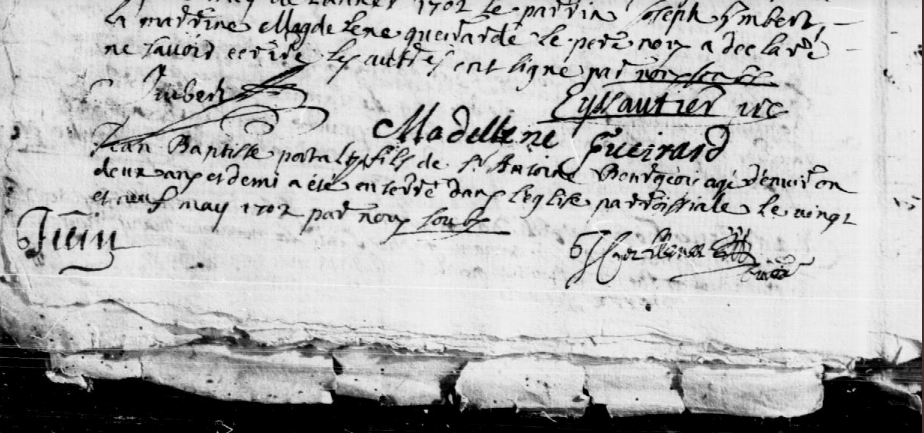 may de lannee 1702 le parrin Joseph Ymbert,
la marrine Magdelene gueirarde le pere non a declaré
ne savoir ecrire les autres ont signe par nous
Imbert Eyssautier
Madellene Gueirard
Jean Baptiste portalys fils de Sr Antoine Bourgeois agé d'environ
deux ans et demi a été enterré dans l'eglise parroissiale le vingt
et neuf may 1702 par nous
Juin